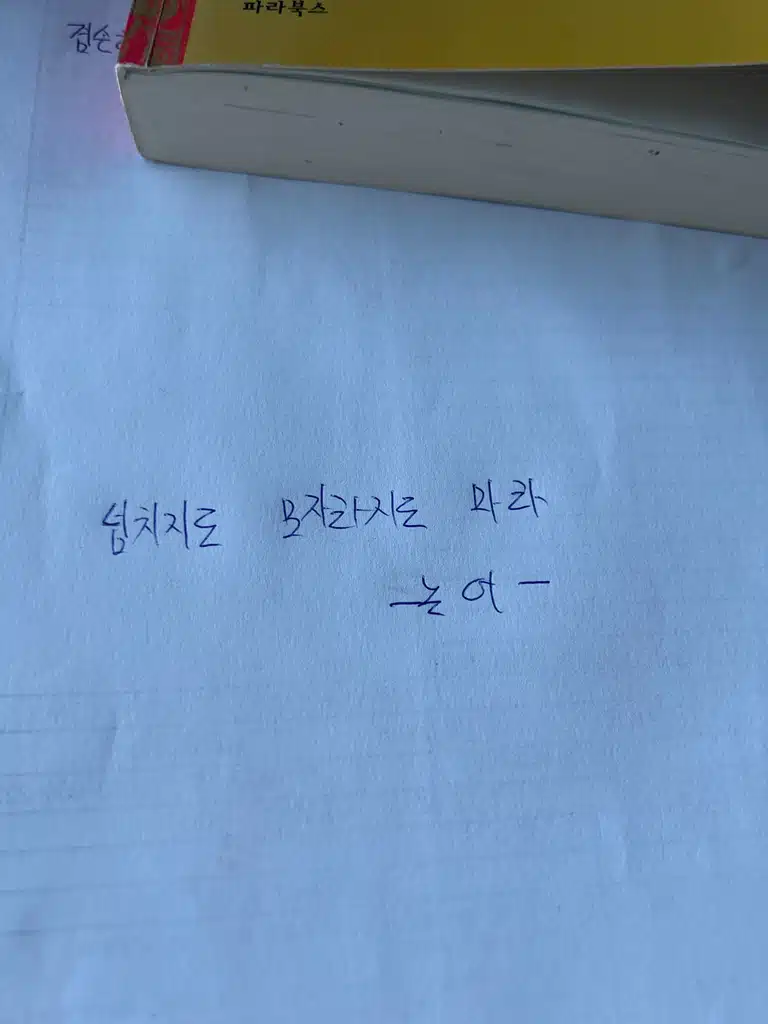 파라북스
겸손
넘치지도 모자라지도 마라
- 논어 -